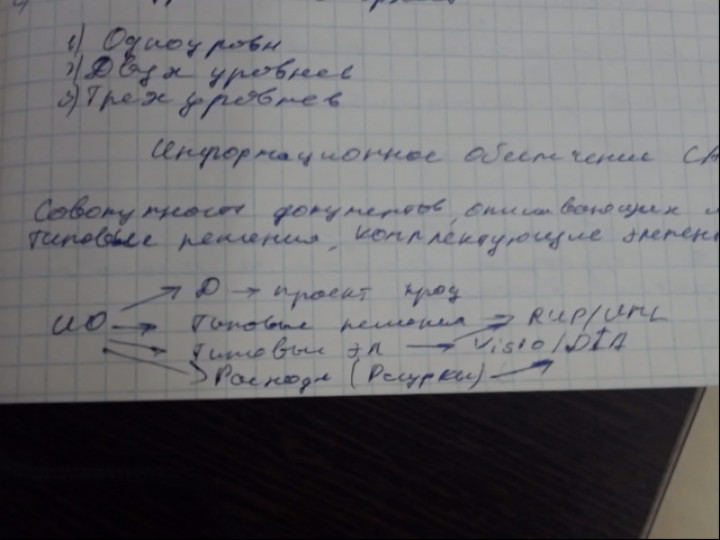 1) Одноуровн
2) Двух уровнев
3) Трех уровнев
Информационное обеспечение СА
Совокупность документов, описывающих
типовые решения, комплектующие элемен
D → проект прод
ИО → Типовые решения → RUP/UML
→ типовые эл → Visio/DIA
Расходы (Ресурсы)